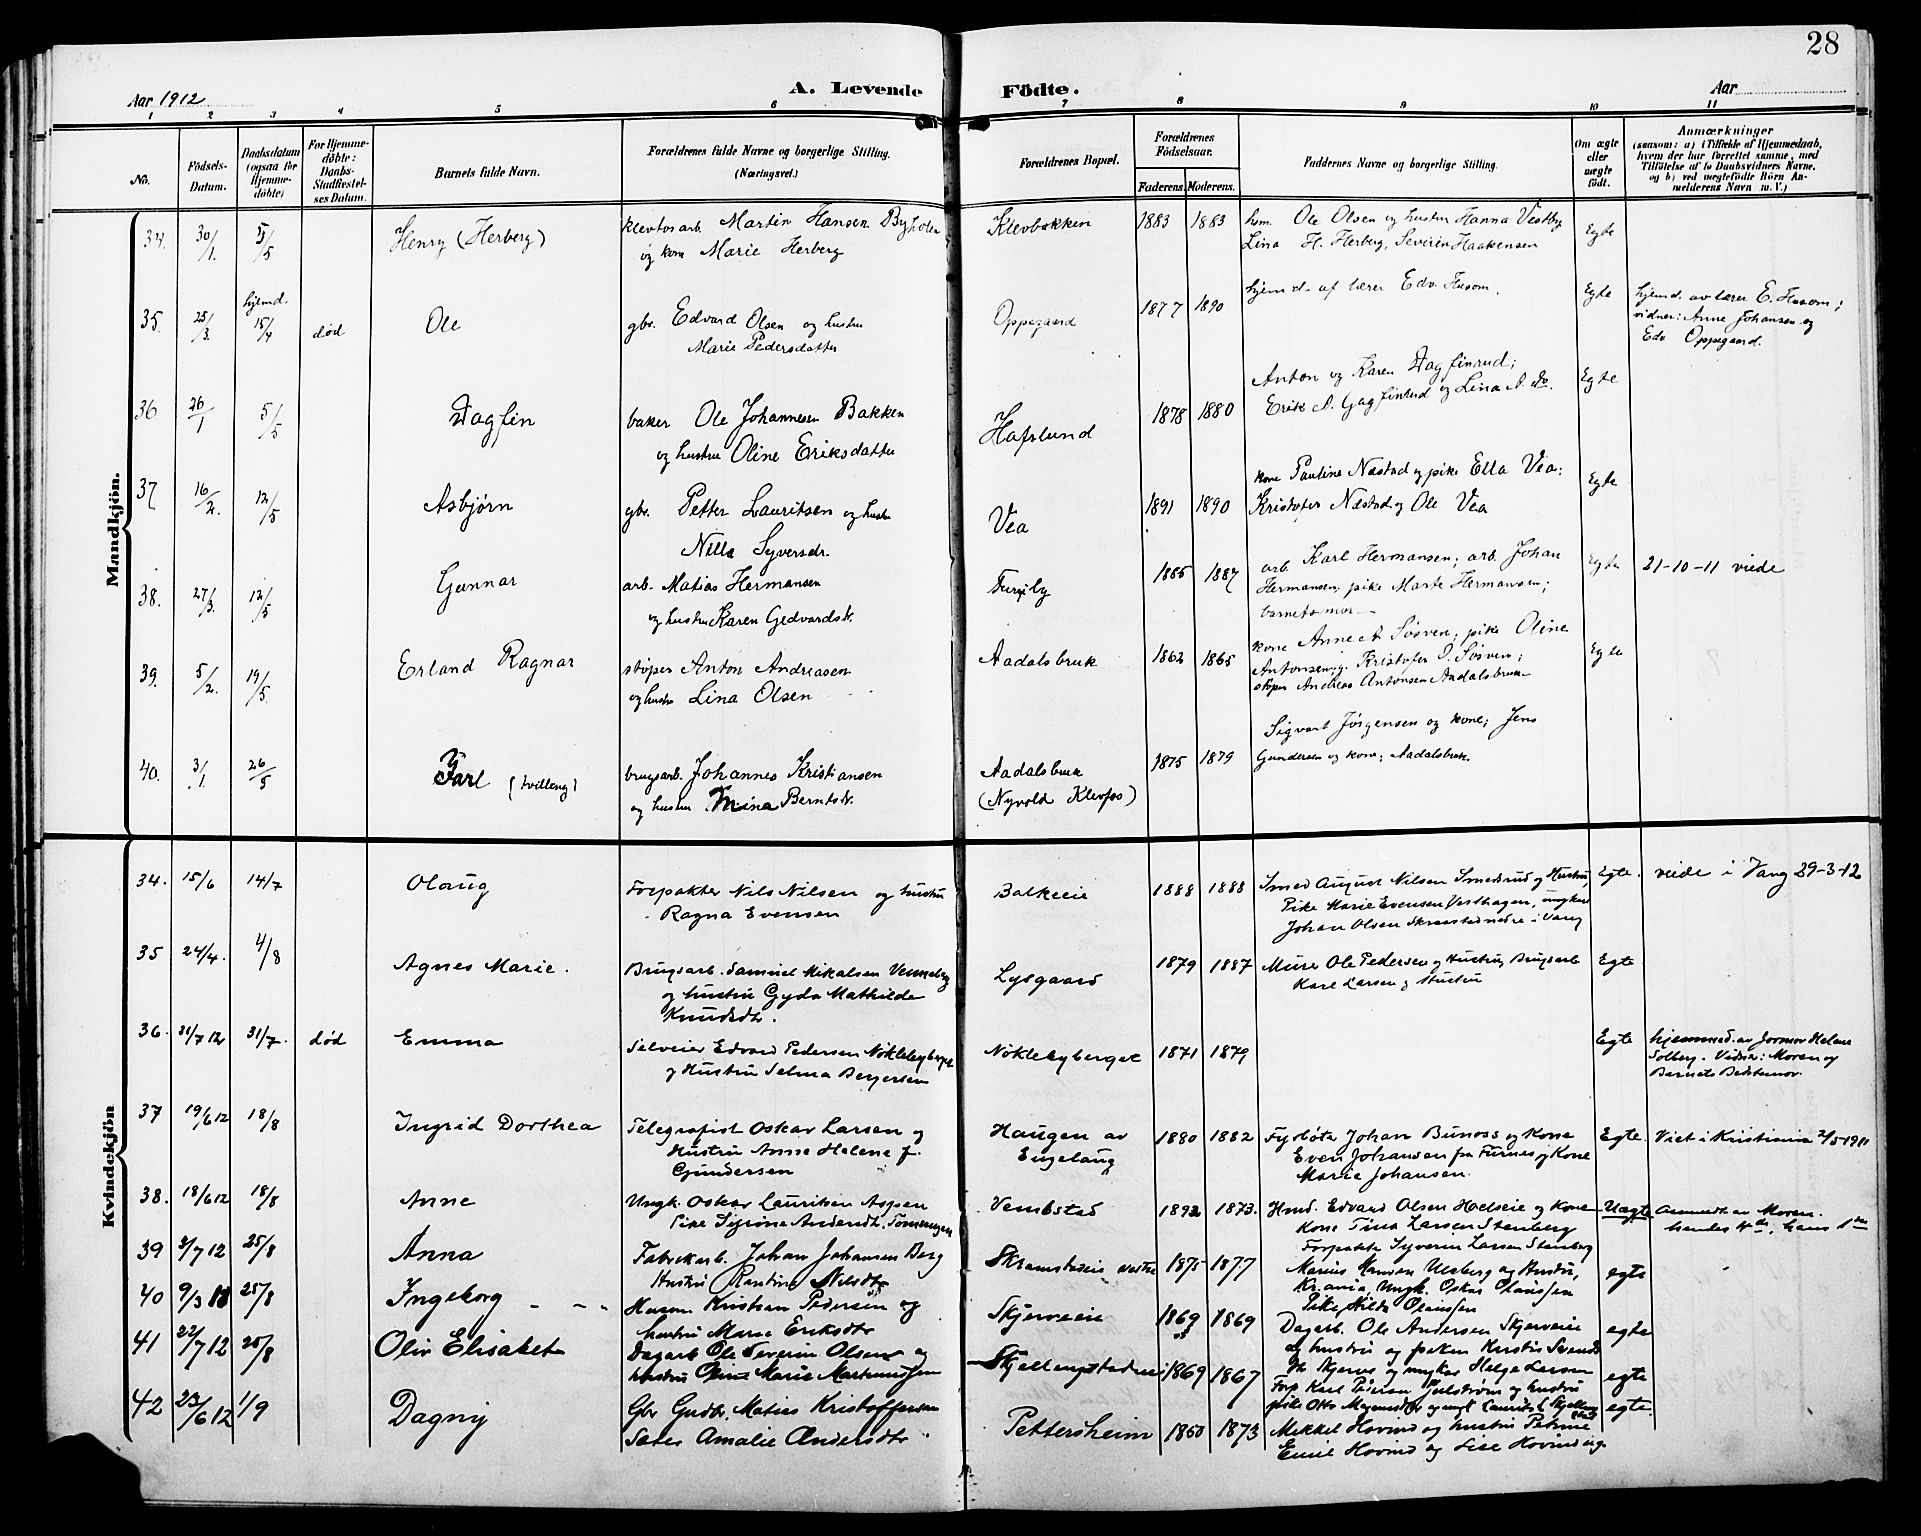 28
Aar 1912
A. Levende Födte.
Aar
1 2 3 4 5 6 7 8 9 10 11
No.
Födsels-Datum.
Daabsdatum (ogsaa for Hjemme-döbte)
For Hjemme-döbte: Daabs-Stadfæstel-ses Datum.
Barnets fulde Navn.
Forældrenes fulde Navne og borgerlige Stilling.
(Næringsvei.)
Forældrenes Bopæl.
Forældrenes Födselsaar.
Faderens. Moderens.
Faddernes Navne og borgerlige Stilling.
Om ægte eller uægte födt.
Anmærkninger
(saasom: a) i Tilfælde af Hjemmedaab, hvem der har forrettet samme, med Tilföielse af to Daabsvidners Navne, og b) ved uægtefödte Börn An-melderens Navn m. V.)
Mandkjön.
34. 30/1. 5/5 Henry (Herberg) Klevfos arb. Martin Hansen Byholen Klevbakken 1883 1883 hem. Ole Olsen og hustru Hanna Vestby Egte
og kone Marie Herberg Lina H. Herberg, Severin Haakensen
35. 25/3. hjemd. 15/4 død Ole gbr. Edvard Olsen og hustru Oppegaard 1877 1890 hjemd. af lærer Edv. Husom. Egte hjemd. av lærer E. Husom;
Marie Pedersdatter vidner: Anne Johansen og
Edv Oppegaard.
36 26/1 5/5 Dagfin baker Ole Johannesen Bakken Hafslund 1878 1880 Anton og Karen Dagfinrud; Egte
og hustru Oline Eriksdatter Erik A. Gagfinrud og Lina A. do.
37 16/2. 12/5 Asbjørn gbr. Petter Lauritsen og hustru Vea 1891 1890 kone Pauline Næstad og pike Ella Vea; Egte
Nilla Syversdr. Kristofer Næstad og Ole Vea
38. 27/3. 12/5 Gunnar arb. Matias Hermansen 1885 1887 arb Karl Hermansen; arb. Johan Egte 21-10-11 viede
og hustru Karen Gedvardsdr. Hermansen, pike Marte Hermansen;
barnets mor
39. 5/2. 19/5. Erland Ragnar støper Anton Andreasen Aadalsbruk 1862 1865 kone Anne A Søsven; pike Oline Egte
og hustru Lina Olsen Antonsen; g. Kristofer O. Søsven;
støper Andreas Antonsen Aadalsbruk
40. 3/1. 26/5 Jarl (tvilling) brugsarb. Johannes Kristiansen Aadalsbruk 1875 1879 Sigvart Jørgensen og kone; Jens
og hustru Mina Berntsdr. (Nyvold Klevfos) Gundersen og kone; Aadalsbruk.
Kvindekjön
34. 15/6 14/7 Olaug Forpakter Nils Nilsen og hustru Balkeeie 1888 1888 Smed August Nilsen Smedsrud og Hustru, Egte. viede i Vang 29-3-12
Ragna Evensen Pike Marie Evensen Vesthagen, ungkar
Johan Olsen Skramstad nedre i Vang
35 24/4. 4/8 Agnes Marie. Brugsarb. Samuel Mikalsen Venneberg Lysgaard 1879 1887 Murer Ole Pedersen og Hustru, Brugsarb Egte.
og hustru Gyda Mathilde Karl Larsen og Hustru
Knudsdtr.
36. 31/7 12 31/7. død Emma Selveier Edvard Pedersen Nøklebyberget Nøklebyberget 1871 1879 Egte hjemmed. av Jormor Helene
og Hustru Selma Bergersen Solberg. Vidner: Moren og
Barnets Bedstemor.
37 19/6 12 18/8 Ingrid Dorthea Telegrafist Oskar Larsen og Haugen av 1880 1882 Fyrbøter Johan Bunoss og Kone Egte. Viet i Kristiania 2/5-1911
Hustru Anne Helene f. Engelaug Even Johansen fra Furnes og Kone
Gundersen Marie Johansen.
38. 18/6 12 18/8 Anne Ungk. Oskar Lauritsen Aspen Vembstad 1892 1873. Hmd. Edvard Olsen Hoelseie og Kone Uægte Anmeldt av Moren.
Pike Syrine Andersdtr. Kone Tina Larsen Stenberg hendes 4de, hans 1ste
Forpakter Syverin Larsen Stenberg
39 2/7 12 25/8 Anna Fabrikarb. Johan Johansen Berg Skramstadeie vestre 1875 1877 Marius Hansen Ulsberg og Hustru, egte
Hustru Rantine Nilsdtr Kr.ania, Ungk. Oskar Olaussen
Pike Hilda Olaussen
40 9/3 11 25/8 Ingeborg Husmd. Kristian Pedersen og Skjerveeie 1869 1869 Dagarb. Ole Andersen Skjerveeie egte
hustru Marie Eriksdtr og hustru og piken Kristie Svends
41 22/7 12 25/8 Oliv Elisabet Dagarb Ole Severin Olsen og Skjellungstadeie 1869 1867 Th Skjerve og ungkar Helge Larsen egte
hustru Oline Marie Martinussen Forp Karl Pedersen Julstrøm og hustru
42 23/6 12 1/9 Dagny Gbr Gudbr. Matias Kristoffersen Pettersheim 1860 1873 egte.
Amalie Andersdtr Mikkel Hovind og hustru Petrine
Emil Hovind og Lise Hovind ug.